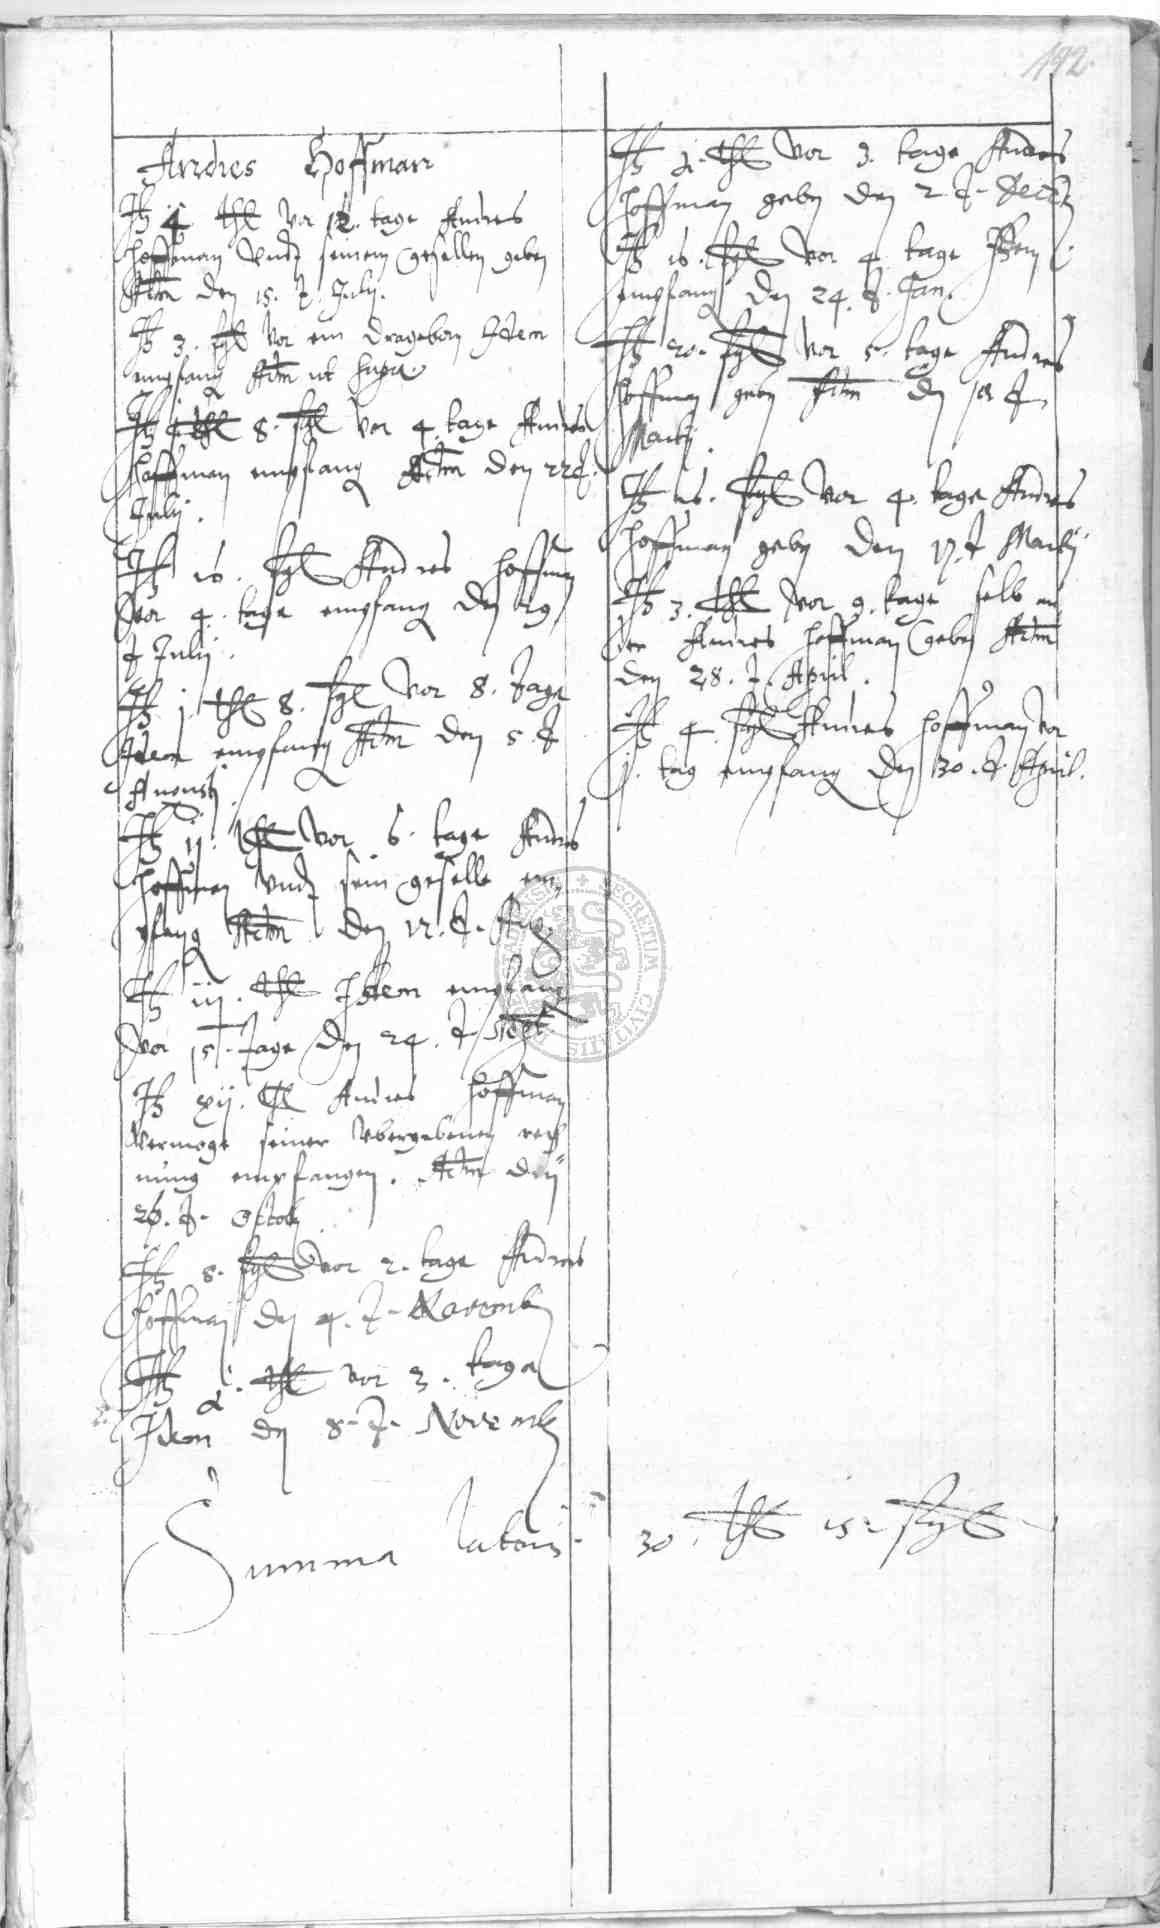 192.
Andres Hoffman
It 4 thl vor 12. tage Andres
hoffman vnd seinem gesellen geben
Actm den 15. d. July.
It 3. sgl vor ein dragebon Idem
empfang Actm ut supra.
It 1 thl 8. sgl vor 4. tage Andres
hoffman empfang Actm den 22 d.
July.
It 16. sgl Andres hoffman
vor 4. tage empfang den 29
d July.
It j. thl 8. sgl vor 8. tage
Idem empfang Actm den 5. d
Augusti.
It ij. thl vor 6. tage Andres
hoffman vnd sein geselle em
pfang Actm den 12. d. Aug.
It iij. thl Idem empfang
vor 15. tage den 24. d Sept
It xij. thl Andres hoffman
vermoge seiner vbergebenen rech
nung empfangen. Actm den
26. d. Octob
It 8. sgl vor 2. tage Andres
hoffman den 4. d. Novemb
It 1. thl vor 3. tage
Idem den 8. d. Novemb
It 1. thl vor 3. tage Andres
hoffman geben den 2 d. Decemb
It 16. sgl vor 4. tage Idem
empfang den 24. d. Jan.
It 20. sgl vor 5. tage Andres
hoffman geben Actm den d
Martij.
It 16. sgl vor 4. tage Andres
hoffman geben den 17. d Martij
It 3. thl vor 9. tage selb an
der Andres hoffman geben Actm
den 28. d. April.
It 4. sgl Andres hoffman vor
j. tag empfang den 30. d. April.
Summa lateris 30. thl 15. sgl
SECRETUM CIVITATIS